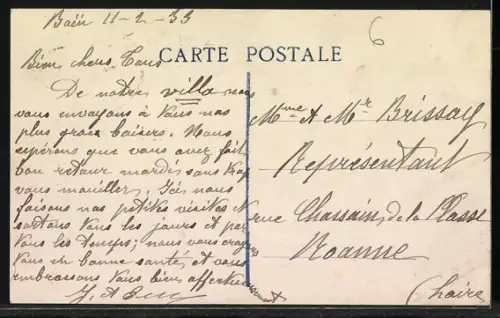 11-2-33
6
CARTE POSTALE
Bien chers Tous
De notre villa nous
vous envoyons à Tous nos
plus gros baisers. Nous
espérons que vous avez fait
bon retour mardi sans trop
vous mouiller. Ici nous
faisons nos petites visites et
sortons tous les jours et par
tous les temps; nous vous croyons
tous en bonne santé et vous
embrassons tous bien affectueu
sement
Mme & Mr Brissay
Représentant
rue Chassain de la Plasse
Roanne
(Loire)